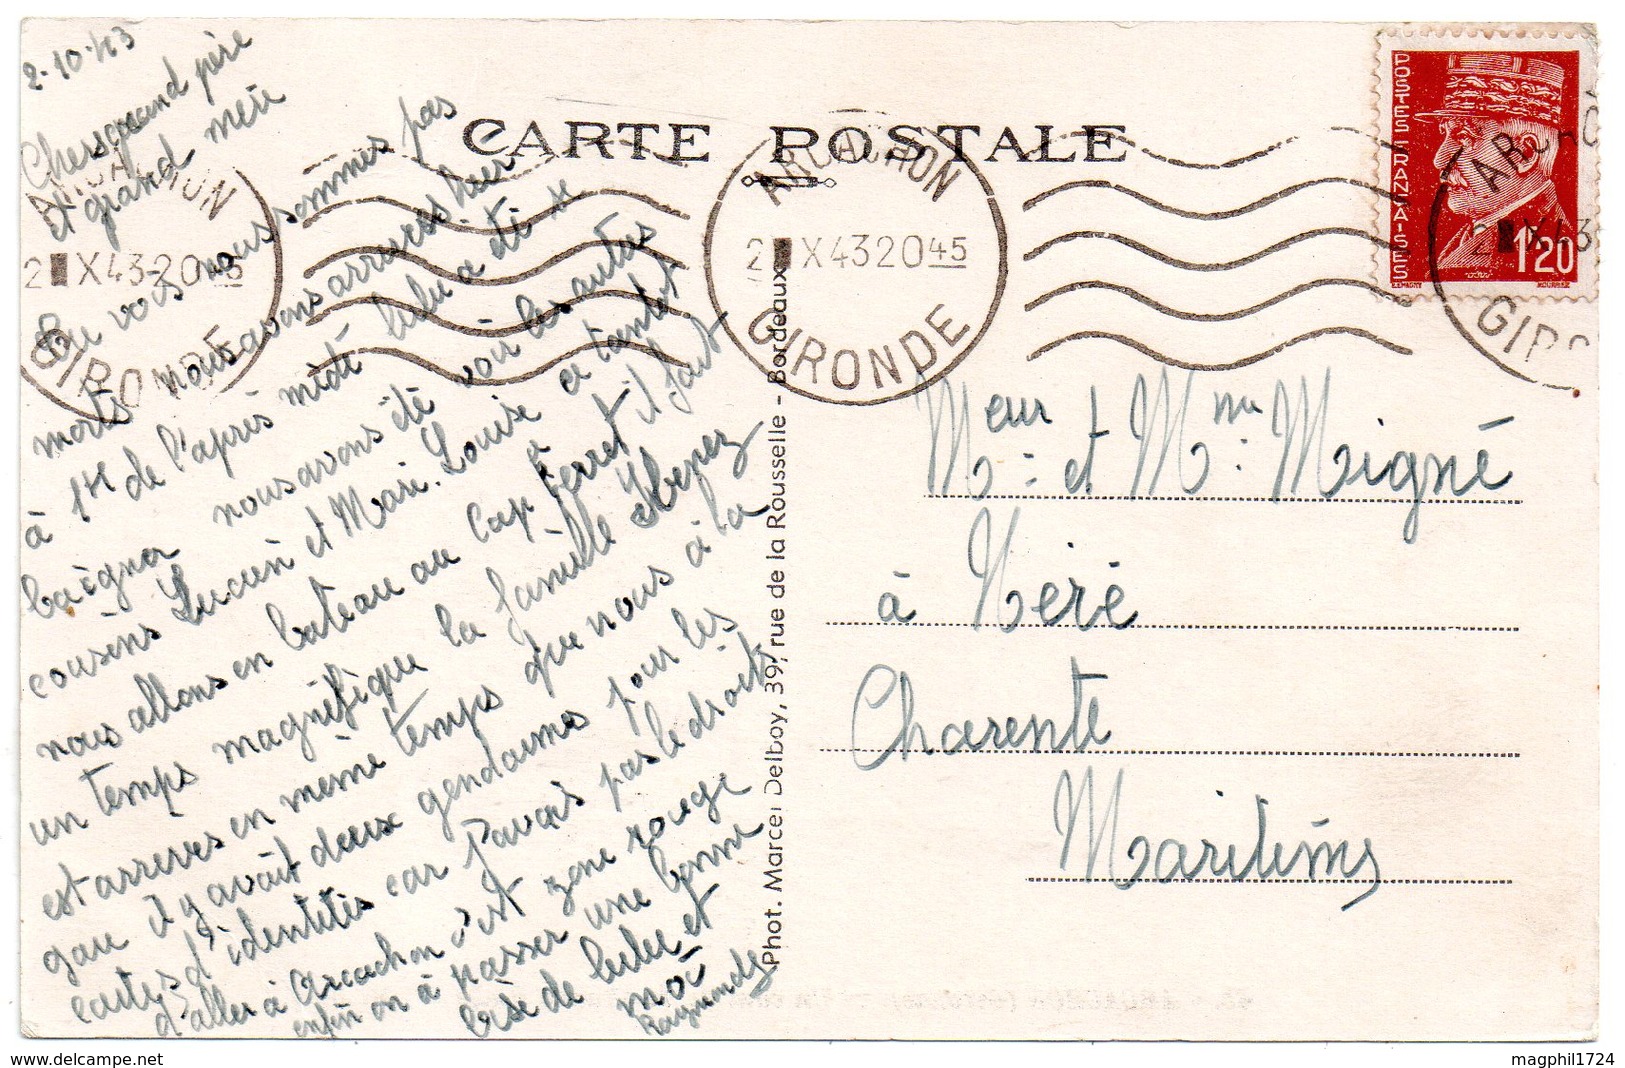 2-10-43
Chers grand père
et grand mère
Que vous nous sommes pas
morts nous avons arrivés hier
à 1H de l'après midi lulu a été se
baigner nous avons été voir les autres
cousins Lucien et Marie-Louise a tantot
nous allons en bateau au Cap Ferret il fait
un temps magnifique la famille
est arrives en même temps que nous à la
gare il y avait deux gendarmes pour les
cartes d'identités car j'avais pas le droit
d'aller à Arcachon c'est zone rouge
enfin on à passer une bonne
bise de lulu et
moi
Raymonds
CARTE POSTALE
ARCACHON
2 X 43 20 45
GIRONDE
ARCACHON
2 X 43 20 45
GIRONDE
ARCACHO
2 X 43
GIRO
POSTES FRANÇAISES
1F20
Phot. Marcel Delboy, 39, rue de la Rousselle - Bordeaux
Meur et Mme Meigné
à Néré
Charente
Maritime
magphil1724
www.delcampe.net